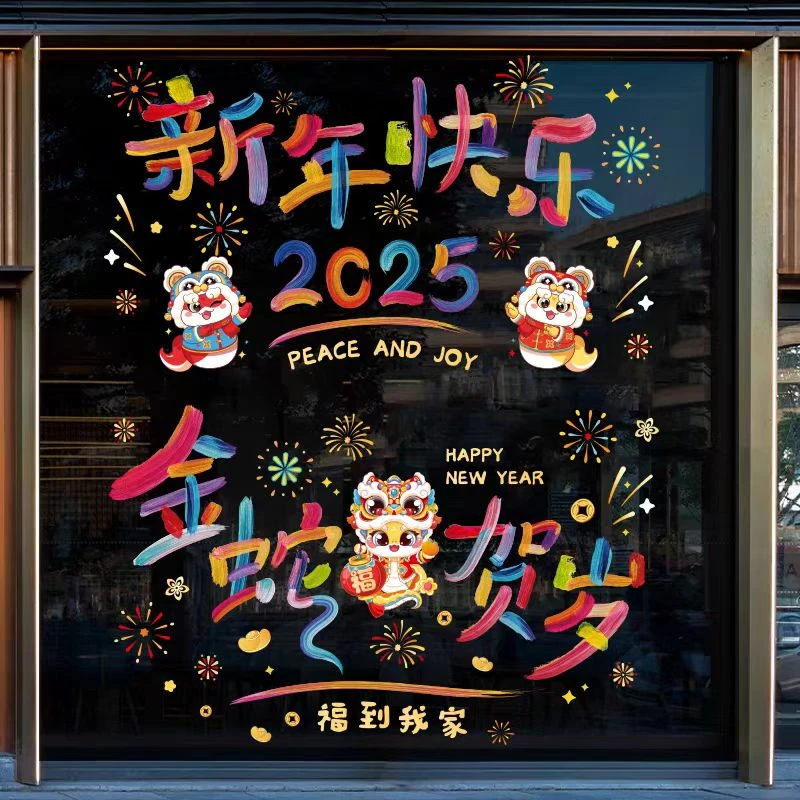 新年快乐
2025
PEACE AND JOY
金蛇贺岁
HAPPY
NEW YEAR
福
福到我家